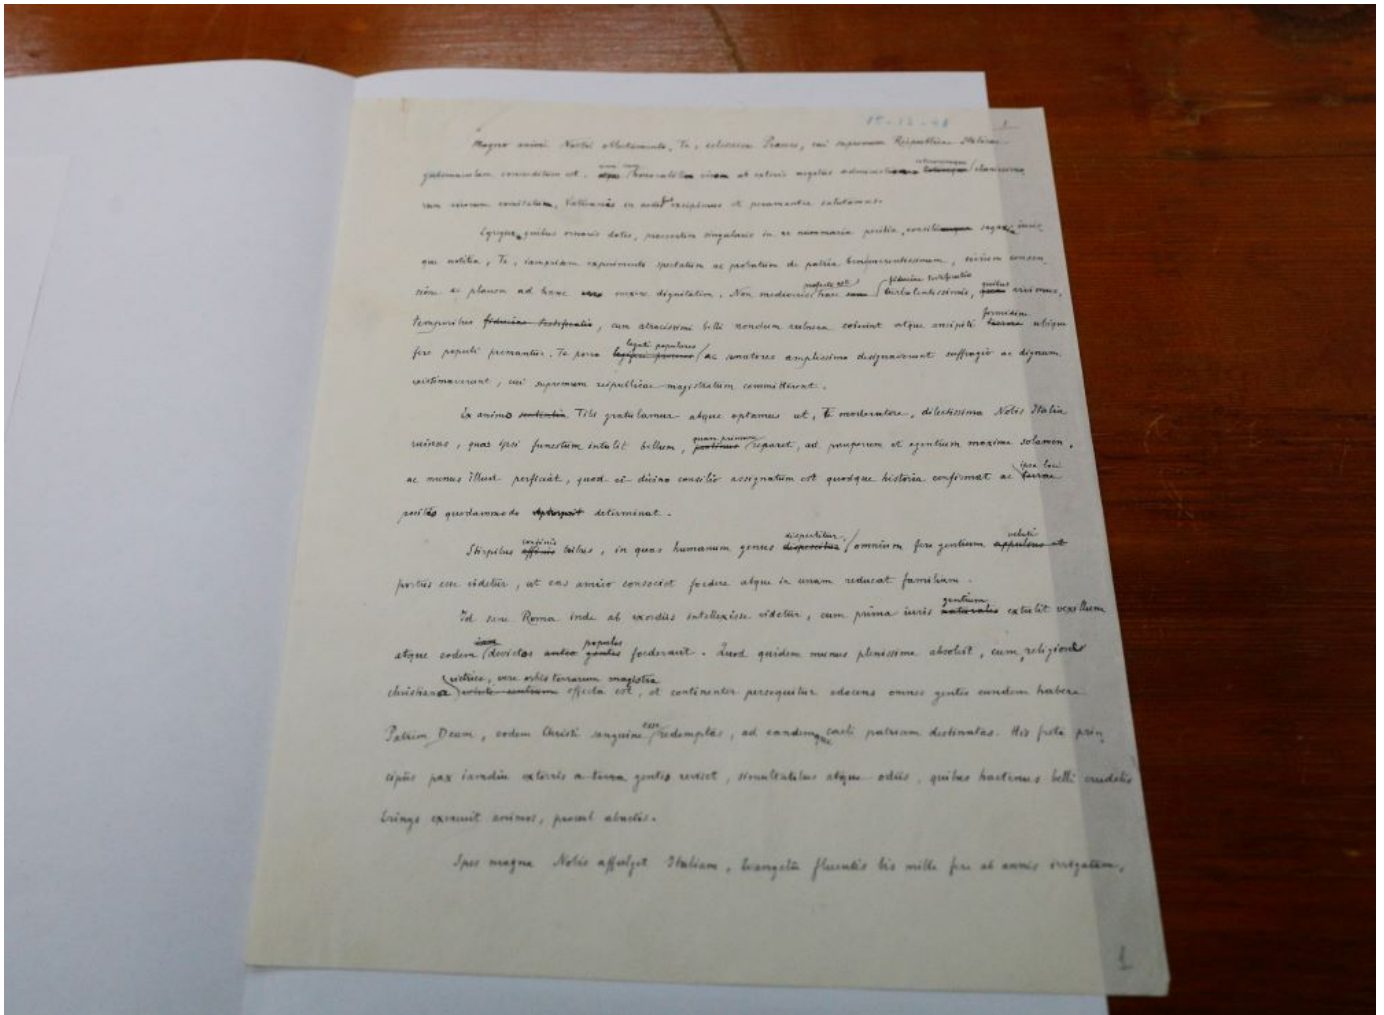 15-12-48
1
Magno animi Nostri oblectamento, Te, celsissime Praeses, cui supremum Reipublicae Italicae
gubernaculum concreditum est, et ceteris negotiis clarissimo
rum virorum comitatum, Vaticanas in aedes excipimus et peramanter salutamus.
Egregiae, quibus ornaris dotes, praesertim singularis in re nummaria peritia, sagax, iuris
que notitia, Te, iampridem experimento spectatum ac probatum de patria benemerentissimum, civium consen
sione ac plausu ad hanc evexere dignitatem. Non mediocris profecto est haec fiduciae testificatio turbulentissimis, quibus vivimus,
temporibus fiduciae testificatio, cum atrocissimi belli nondum vulnera coierint atque ancipiti formidine terrore ubique
fere populi premantur. Te porro legati populares ac senatores amplissimo designaverunt suffragio ac dignum
existimaverunt, cui supremum reipublicae magistratum committerent.
Ex animo sententia Tibi gratulamur atque optamus ut, Te moderatore, dilectissima Nobis Italia
ruinas, quas ipsi funestum intulit bellum, quam primum protinus reparet, ad pauperum et egentium maxime solamen,
ac munus illud perficiat, quod ei divino consilio assignatum est quodque historia confirmat ac ipse loci terrae
positus quodammodo determinat.
Stirpibus continis affinis talibus, in quas humanum genus dispertitur, dispescitur omnium fere gentium veluti appulsus et
portus esse videtur, ut eas amico consociet foedere atque in unam reducat familiam.
Id sane Roma inde ab exordiis intellexisse videtur, cum prima iuris gentium naturalis extulit vexillum
atque eodem iam devictos antea populos gentes foederavit. Quod quidem munus plenissime absolvit, cum, religione
christiana victrice, vere orbis terrarum magistra effecta est, et continenter persequitur edocens omnes gentes eundem habere
Patrem Deum, eodem Christi sanguine esse redemptas, ad eandemque caeli patriam destinatas. His freta prin
cipiis pax iamdiu extorris a terra gentes reviset, simultatibus atque odiis, quibus hactenus belli crudelis
Erinys exacuit animos, procul abactis.
Spes magna Nobis affulget Italiam, Evangelii fluentis bis mille fere ab annis irrigatam,
1